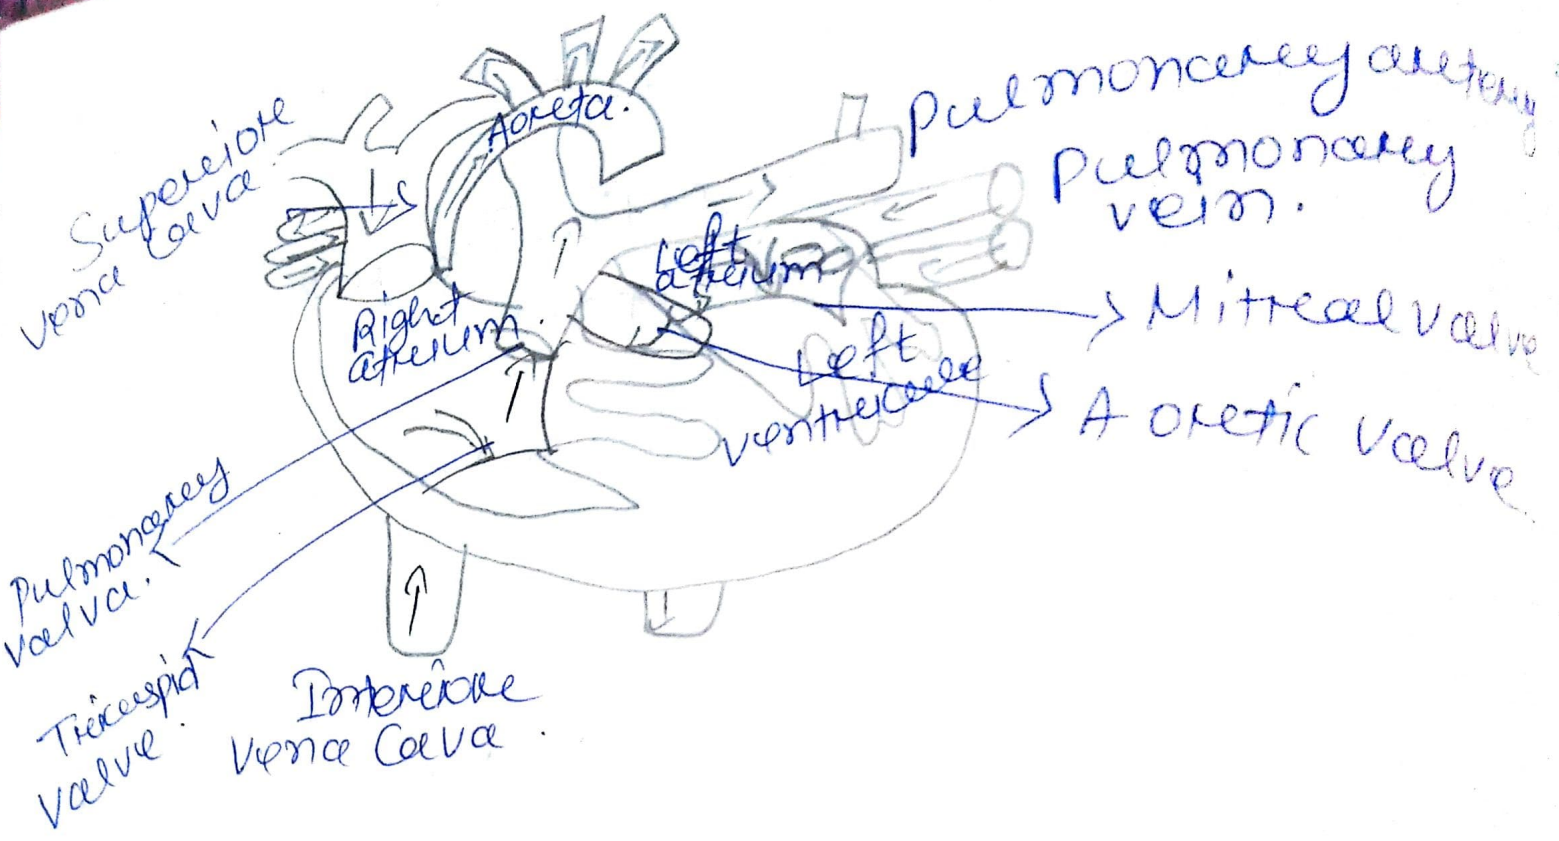 Superiore
vena cava
Aoreta.
Pulmonarey aretery
Pulmonarey
vein.
Left
atreium
Right
atreium.
Mitreal valve
Left
ventreicule
Aoretic valve
Pulmonarey
valva.
Treicuspid
valve.
Inferiore
Vena Cava.